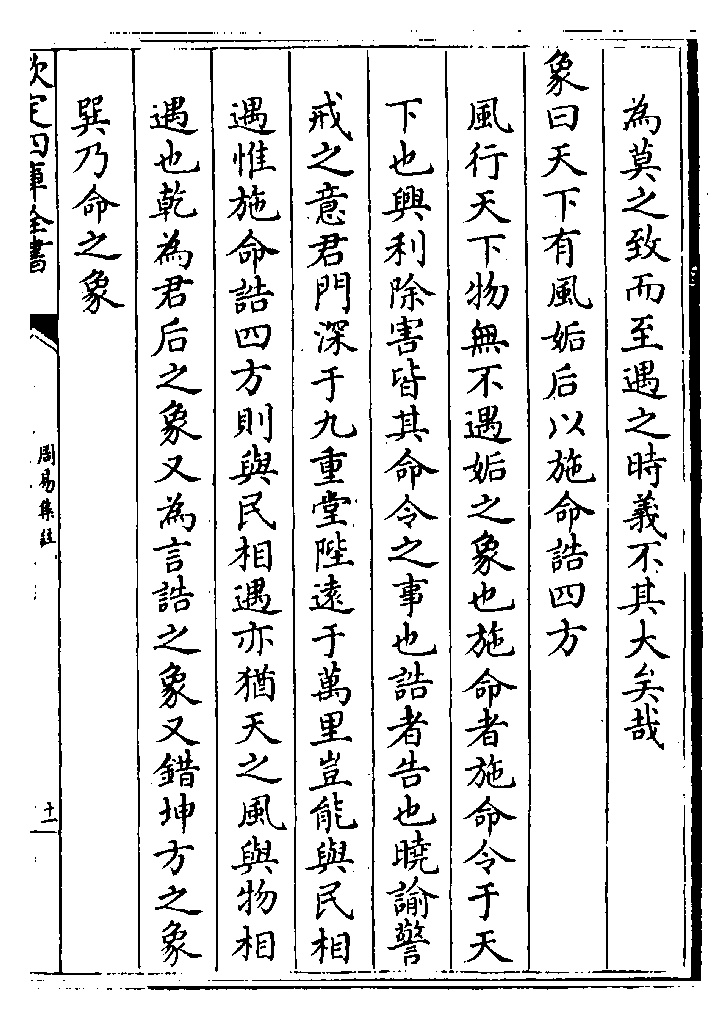 為莫之致而至遇之時義不其大矣哉
象曰天下有風姤后以施命誥四方
風行天下物無不遇姤之象也施命者施命令于天
下也興利除害皆其命令之事也誥者告也曉諭警
戒之意君門深于九重堂陛遠于萬里豈能與民相
遇惟施命誥四方則與民相遇亦猶天之風與物相
遇也乾為君后之象又為言誥之象又錯坤方之象
巽乃命之象
欽定四庫全書
周易集註
十一